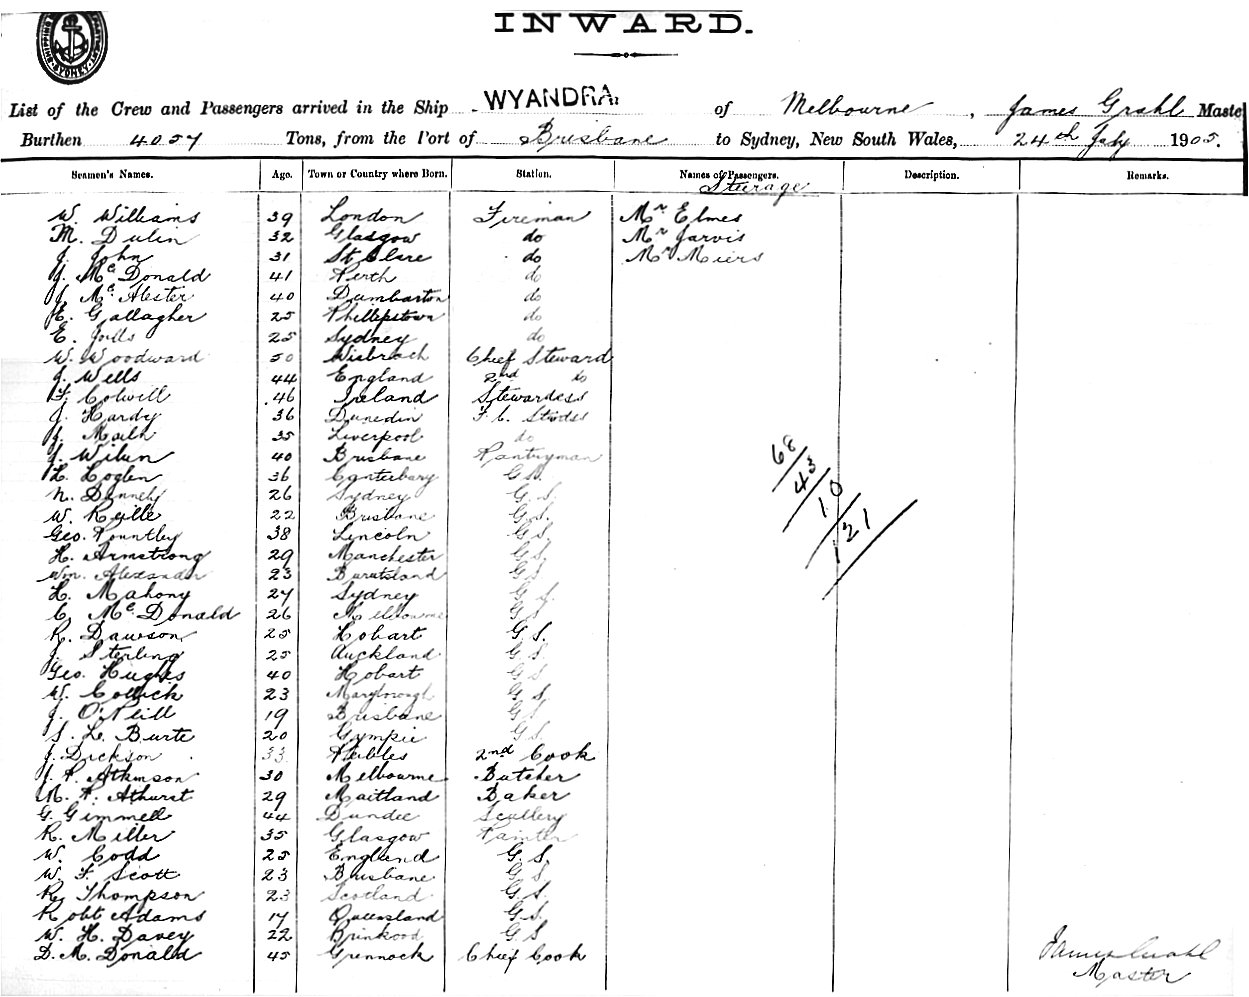 INWARD.
List of the Crew and Passengers arrived in the Ship WYANDRA of Melbourne, James Grahl Maste
Burthen 4057 Tons, from the Port of Brisbane to Sydney, New South Wales, 24th July 1905.
Seamen's Names. Age. Town or Country where Born. Station. Names of Passengers. Description. Remarks.
Steerage
W. Williams 39 London Fireman Mr Elmes
M. Dulin 32 Glasgow do Mr Jarvis
J. John 31 St Clare do Mr Miers
J. McDonald 41 Perth do
J. McAlester 40 Dumbarton do
E. Gallagher 25 Phillipstown do
E. Jolls 25 Sydney do
W. Woodward 50 Wisbeach Chief Steward
J. Wells 44 England 2nd do
F. Colwill 46 Ireland Stewardess
J. Hardy 36 Dunedin F. C. Stwdss
J. 35 Liverpool do
J. Wilson 40 Brisbane Pantryman
L. Loglen 36 Canterbury G.S.
N. Dennely 26 Sydney G.S.
W. Reille 22 Brisbane G.S.
Geo. Pountley 38 Lincoln G.S.
H. Armstrong 29 Manchester G.S.
Wm. Alexander 23 G.S.
H. Mahony 27 Sydney G.S.
C. McDonald 26 Melbourne G.S.
R. Dawson 25 Hobart G.S.
J. Sterling 25 Auckland G.S.
Geo. Hughes 40 Hobart G.S.
W. Collick 23 Maryborough G.S.
J. O'Neill 19 Brisbane G.S.
S. Le Burte 20 Gympie G.S.
J. Dickson 33 Peibles 2nd Cook
J. P. Atkinson 30 Melbourne Butcher
M. P. Athurst 29 Maitland Baker
G. Gimmell 44 Dundee Scullery
R. Miller 35 Glasgow Painter
W. Codd 25 England G.S.
W. F. Scott 23 Brisbane G.S.
R. Thompson 23 Scotland G.S.
Robt Adams 17 Queensland G.S.
W. H. Davey 22 Brinkood G.S.
D. M. Donald 45 Grennock Chief Cook
68
43
10
121
James Grahl
Master